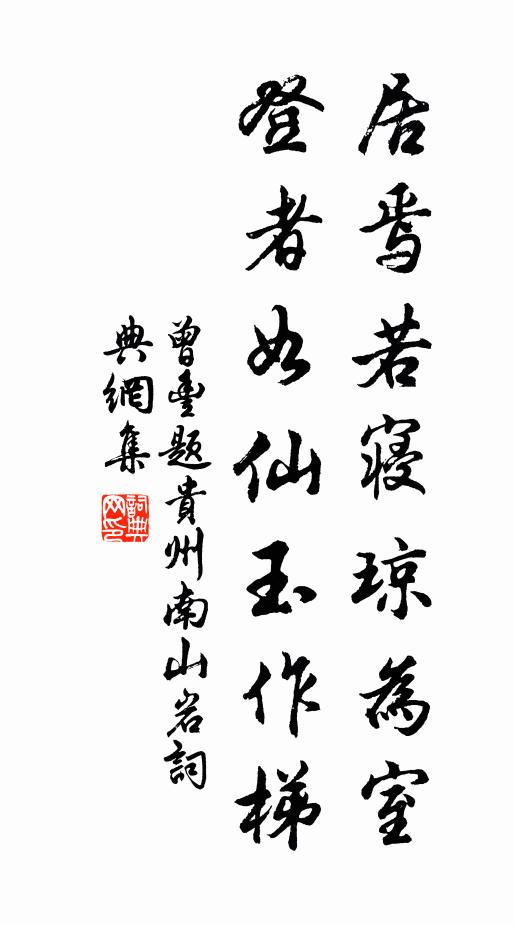 居焉若寢琼為室
登者如仙玉作梯
曾豐题貴州南山岩詞
典網集
詞典
网印